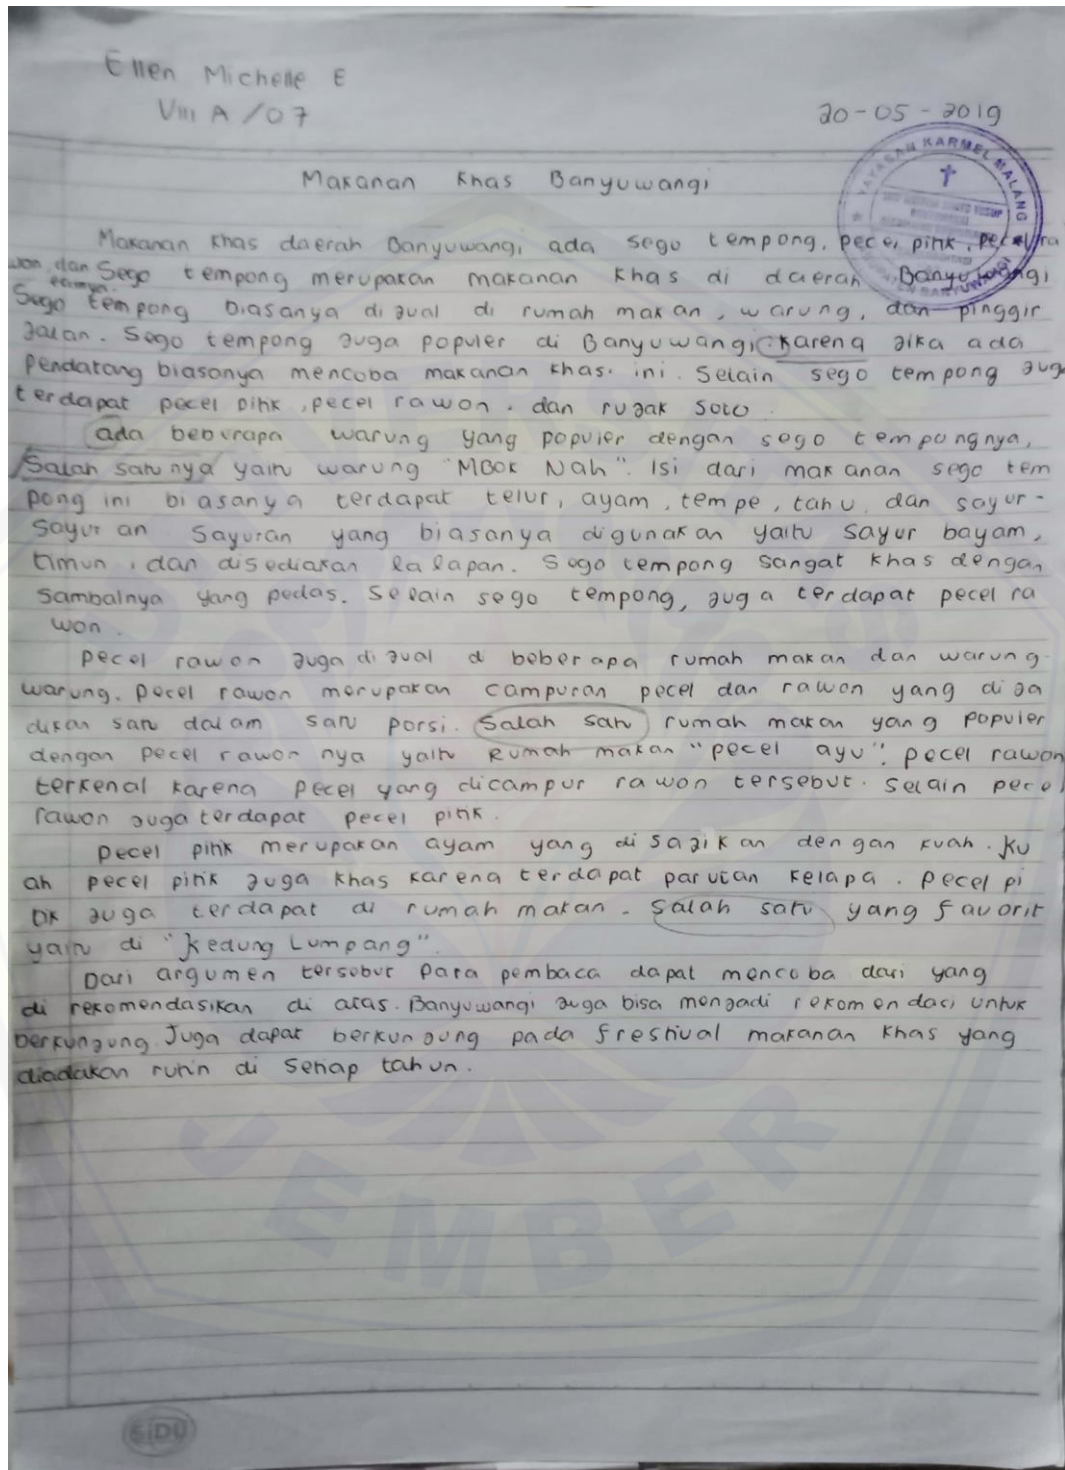 Ellen Michelle E
VIII A / 07
20-05-2019
YAYASAN KARMEL MALANG
KABUPATEN BANYUWANGI
Makanan Khas Banyuwangi
Makanan khas daerah Banyuwangi ada sego tempong, pecel pitik, pecel ra
won, dan Sego tempong merupakan makanan khas di daerah Banyuwangi
Sego tempong biasanya di jual di rumah makan, warung, dan pinggir
jalan. Sego tempong juga populer di Banyuwangi karena jika ada
pendatang biasanya mencoba makanan khas ini. Selain sego tempong jug
terdapat pecel pitik, pecel rawon, dan rujak soto.
ada beberapa warung yang populer dengan sego tempongnya,
Salah satunya yaitu warung "MBOK Nah". Isi dari makanan sego tem
pong ini biasanya terdapat telur, ayam, tempe, tahu, dan sayur-
sayuran Sayuran yang biasanya digunakan yaitu sayur bayam,
timun, dan disediakan lalapan. Sego tempong sangat khas dengan
sambalnya yang pedas. Selain sego tempong, juga terdapat pecel ra
won.
pecel rawon juga di jual di beberapa rumah makan dan warung-
warung. pecel rawon merupakan campuran pecel dan rawon yang di ja
dikan satu dalam satu porsi. Salah satu rumah makan yang populer
dengan pecel rawon nya yaitu Rumah makan "pecel ayu". pecel rawon
terkenal karena pecel yang dicampur rawon tersebut. Selain pecel
rawon juga terdapat pecel pitik.
pecel pitik merupakan ayam yang di sajikan dengan kuah. Ku
ah pecel pitik juga khas karena terdapat parutan kelapa. pecel pi
tik juga terdapat di rumah makan. Salah satu yang favorit
yaitu di "Kedung Lumpang".
Dari argumen tersebut para pembaca dapat mencoba dari yang
di rekomendasikan di atas. Banyuwangi juga bisa menjadi rekomendasi untuk
berkunjung. Juga dapat berkunjung pada frestival makanan khas yang
diadakan rutin di setiap tahun.
SiDU
JEMBER